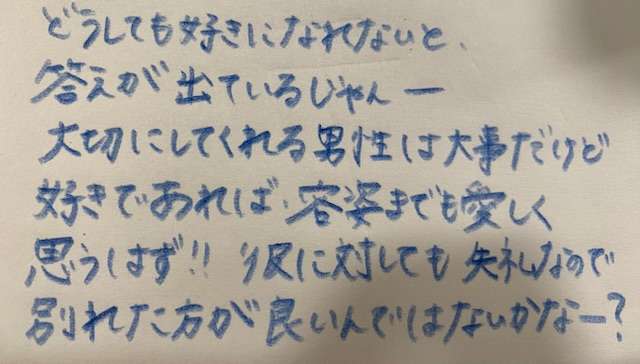 どうしても好きになれないと、
答えが出ているじゃんー
大切にしてくれる男性は大事だけど
好きであれば、容姿までも愛しく
思うはず!! 彼に対しても失礼なので
別れた方が良いんではないかなー?